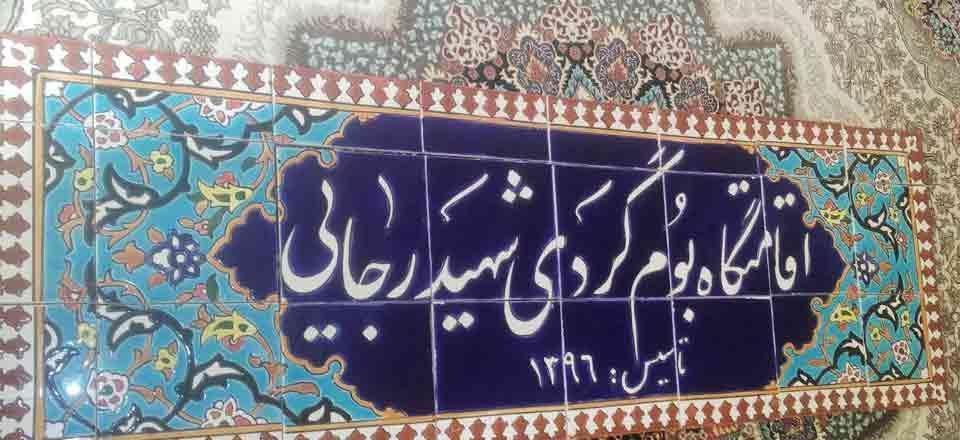 اقامتگاه بُوم گردی شهید رجائی
تاسیس: ۱۳۹۶